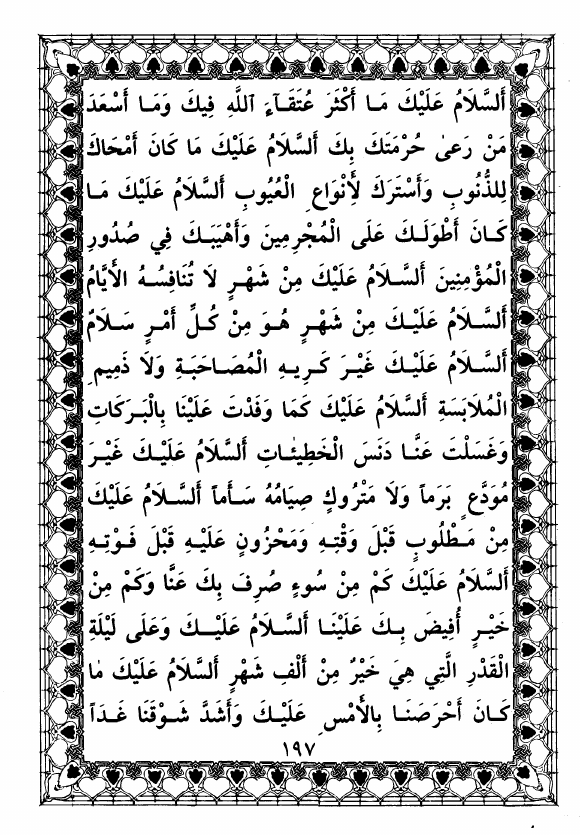 أَلسَّلَامُ عَلَيْكَ مَـا أَكْثَرَ عُتَقَـآءَ ٱللَّهِ فِيكَ وَمَـا أَسْعَدَ
مَنْ رَعىٰ حُرْمَتَكَ بِكَ أَلسَّلَامُ عَلَيْكَ مَا كَانَ أَمْحَاكَ
لِلذُّنُوبِ وَأَسْتَرَكَ لِأَنْوَاعِ الْعُيُوبِ أَلسَّلَامُ عَلَيْكَ مَـا
كَـانَ أَطْوَلَـكَ عَلَى الْمُجْرِمِينَ وَأَهْيَبَـكَ فِي صُدُورِ
الْمُؤْمِنِينَ أَلسَّـلَامُ عَلَيْكَ مِنْ شَهْرٍ لَا تُنَافِسُـهُ الأَيَّامُ
أَلسَّـلَامُ عَلَيْـكَ مِنْ شَهْرٍ هُـوَ مِنْ كُـلِّ أَمْـرٍ سَـلَامٌ
أَلسَّـلَامُ عَلَيْـكَ غَيْـرَ كَـرِيـهِ الْمُصَـاحَبَـةِ وَلَا ذَمِيمِ
الْمُلَابَسَةِ أَلسَّـلَامُ عَلَيْكَ كَمَا وَفَدْتَ عَلَيْنَا بِالْبَـرَكَاتِ
وَغَسَلْتَ عَنَّـا دَنَسَ الْخَطِيئٰـاتِ أَلسَّلَامُ عَلَيْـكَ غَيْـرَ
مُوَدَّعٍ بَرَماً وَلَا مَتْرُوكٍ صِيَامُهُ سَـأَماً أَلسَّـلَامُ عَلَيْكَ
مِنْ مَـطْلُوبٍ قَبْلَ وَقْتِـهِ وَمَحْزُونٍ عَلَيْـهِ قَبْلَ فَـوْتِـهِ
أَلسَّلَامُ عَلَيْكَ كَمْ مِنْ سُوءٍ صُرِفَ بِكَ عَنَّا وَكَمْ مِنْ
خَيْـرٍ أُفِيضَ بِـكَ عَلَيْنَـا أَلسَّـلَامُ عَلَيْـكَ وَعَلَى لَيْلَةِ
الْقَدْرِ الَّتِي هِيَ خَيْرٌ مِنْ أَلْفِ شَهْرٍ أَلسَّلَامُ عَلَيْكَ مٰا
كَـانَ أَحْرَصَنَـا بِالأَمْسِ عَلَيْـكَ وَأَشَدَّ شَـوْقَنَا غَـداً
١٩٧